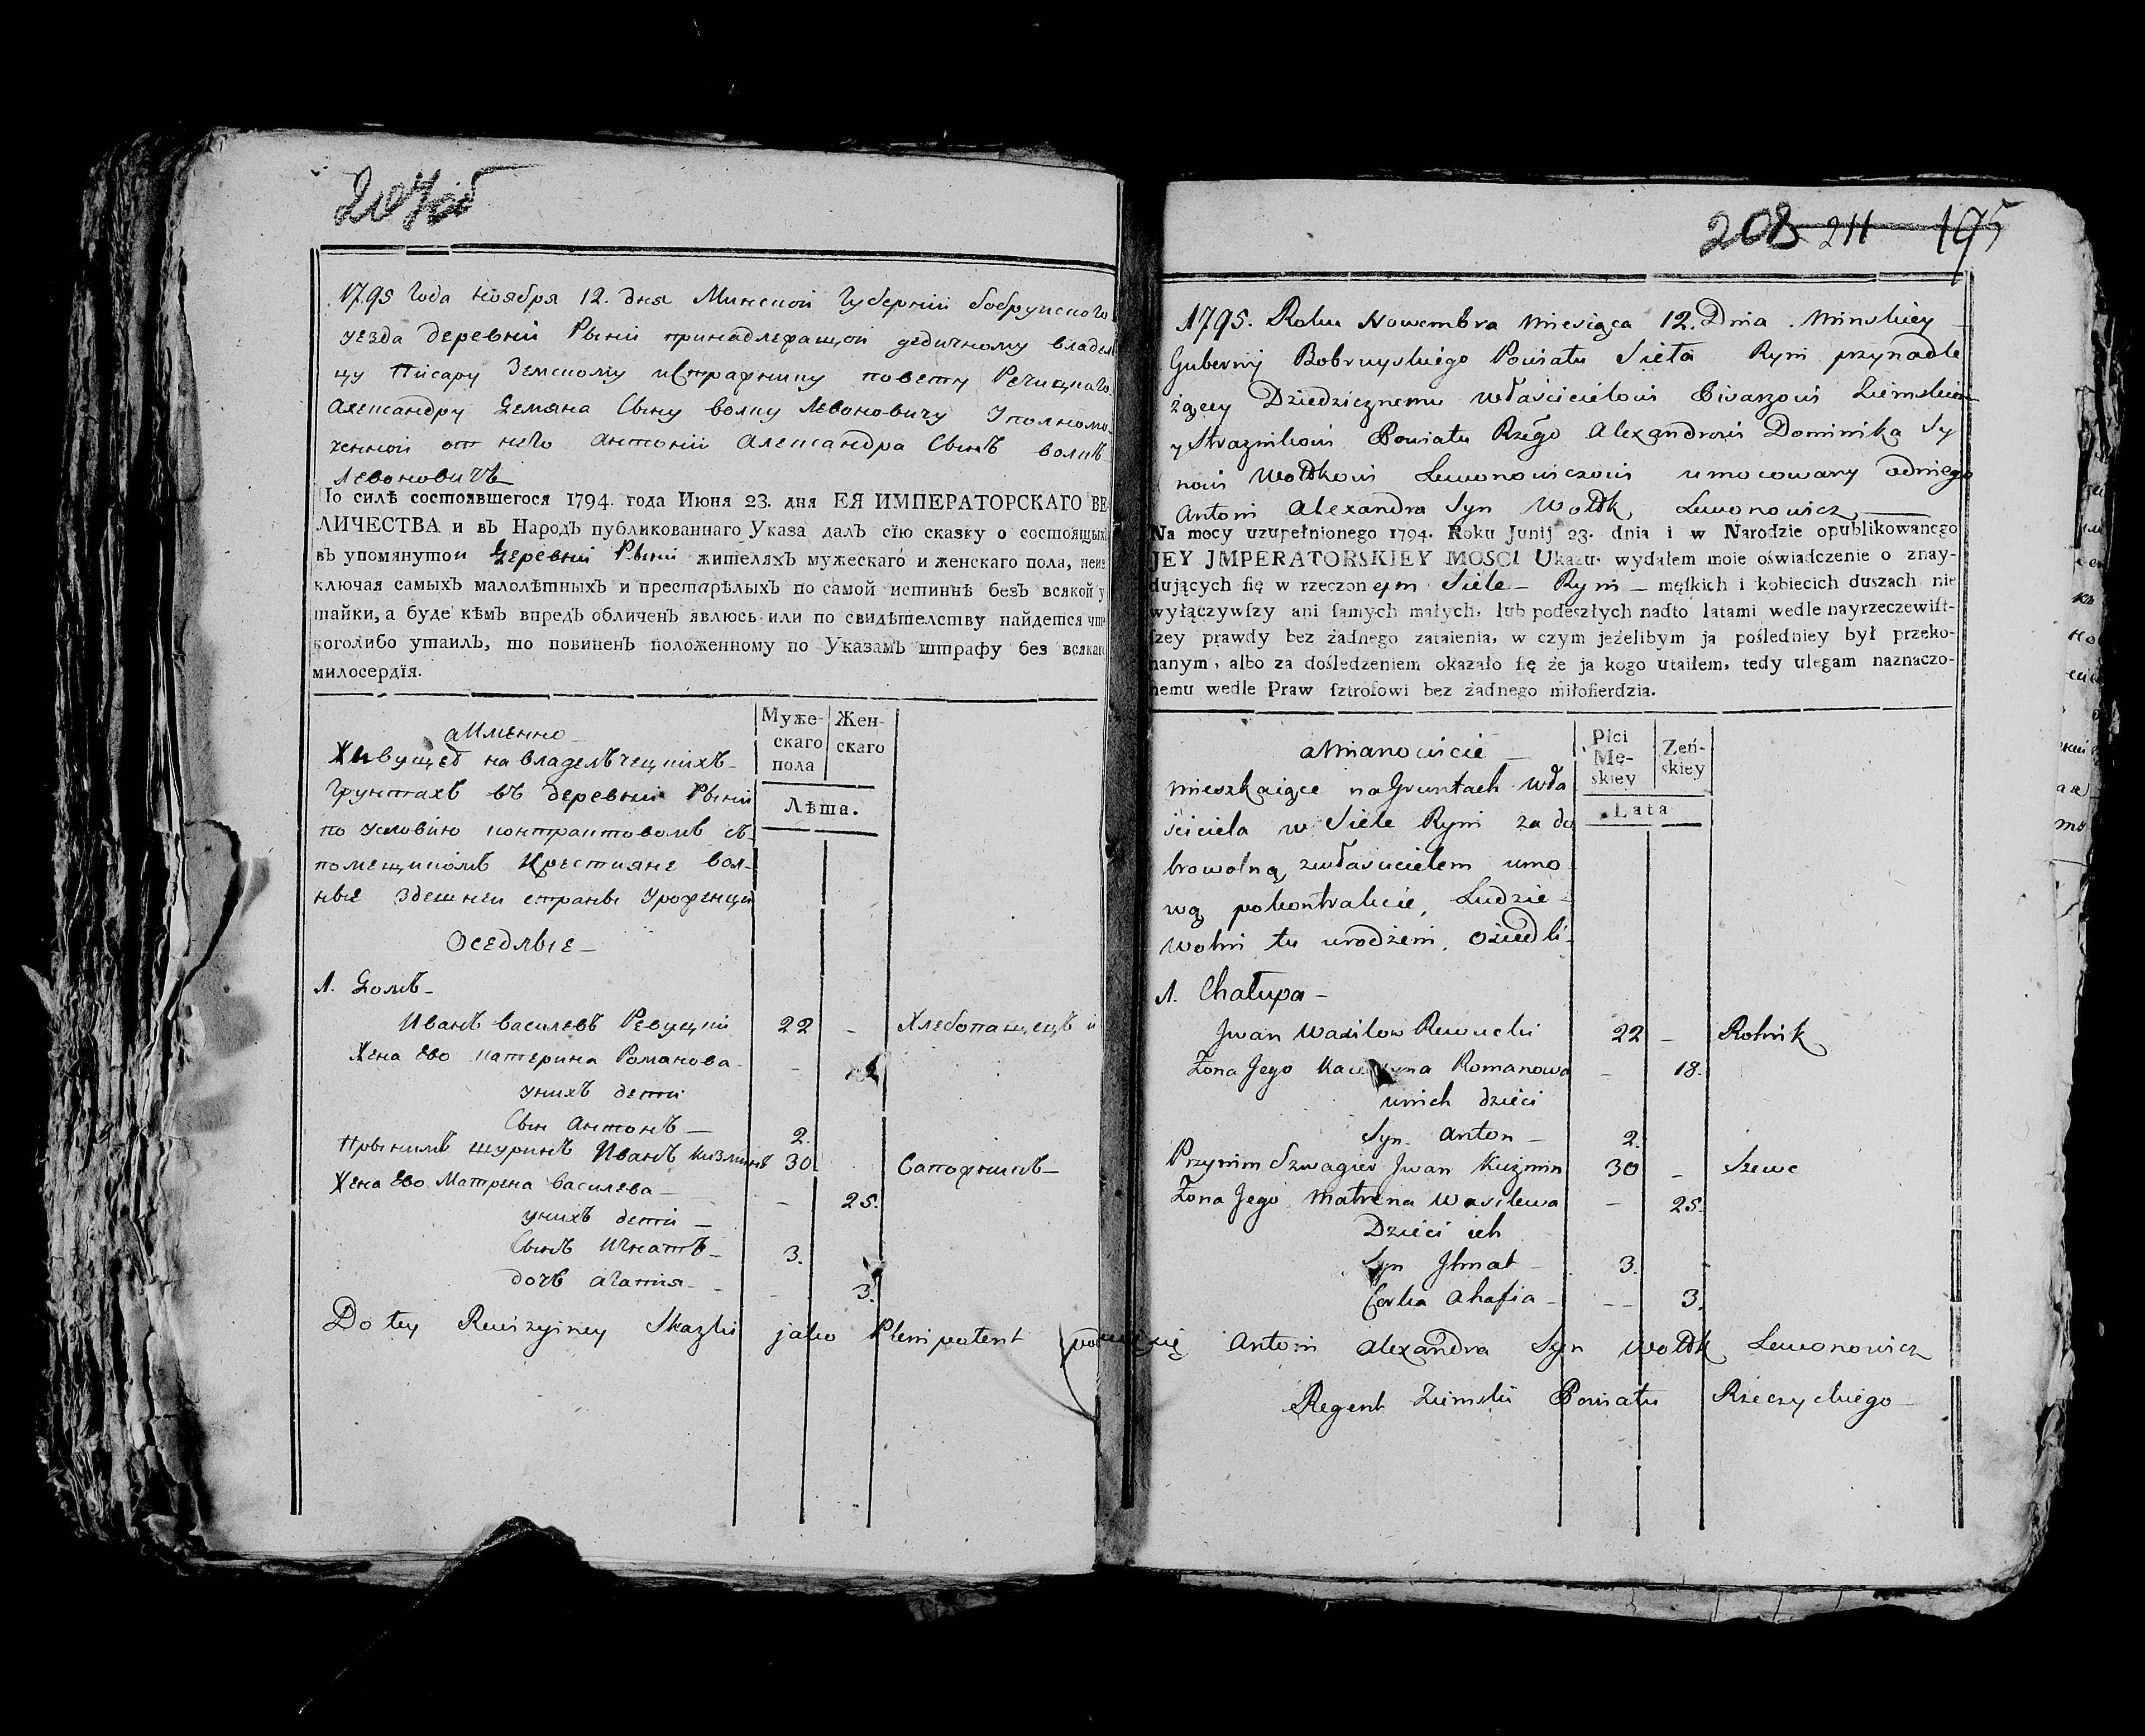 207об
1795 года ноября 12. дня Минской Губернии бобруиского
уезда деревни Рыни принадлежащой дедичному владел
цу Писару Земскому и Стражнику повету Речицкаго
Александру Демяна Сыну волку Левоновичу Уполномо
ченной от него Антоний Александра Сынъ волкъ
Левоновичъ
По силѣ состоявшегося 1794. года Июня 23. дня ЕЯ ИМПЕРАТОРСКАГО ВЕ-
ЛИЧЕСТВА и въ Народъ публикованнаго Указа далъ сїю сказку о состоящихъ
въ упомянутой Деревни Рыни жителяхъ мужескаго и женскаго пола, неис
ключая самыхъ малолѣтныхъ и престарѣлыхъ по самой истиннѣ безъ всякой у
тайки, а буде кѣмъ впредь обличенъ явлюсь или по свидѣтелству найдется что
коголибо утаилъ, то повиненъ положенному по Указамъ штрафу без всякаго
милосердїя.
аИменно
Муже-
скаго
пола
Жен-
скаго
Лѣта.
Живущеѣ на владелъчецкихъ
Грунтахъ въ деревни Рыни
по условию контрактовомъ съ
помещикомъ Крестияне вол-
ные здешней страны Уроженци
Оседлые
1. Домъ
Иванъ василевъ Ревуцкий 22 – Хлебопашецъ и
Жена Ево катерина Романова – 18
у нихъ дети
Сын Антонъ 2.
Прыймъ шуринъ Иванъ Кизминъ 30 Сапожникъ
Жена Ево Матрена василева – 25.
у нихъ дети
Сынъ Игнатъ 3.
дочъ агатия – 3.
Do tey Rewizyiney Skazki jako Plenipotent podpisuię Antoni Alexandra Syn Wołdk Lewonowicz
Regent Ziemski Powiatu Rzeczyckiego
208 211 195
1795. Roku Nowembra Miesiąca 12. Dnia. Minskiey
Gubernij Bobruyskiego Powiatu Sieła Ryni przynadle
żącey Dziedzicznemu właścicielowi Pisarzowi Ziemskiem
y Strażnikowi Powiatu Rzego Alexandrowi Dominika Sy
nowi Wołdkowi Lewonowiczowi umocowany odniego
Antoni Alexandra Syn Wołdk Lewonowicz
Na mocy uzupełnionego 1794. Roku Junij 23. dnia i w Narodzie opublikowanego
JEY JMPERATORSKIEY MOSCI Ukazu. wydałem moie oświadczenie o znay-
dujących ſię w rzeczonym Siele Ryni męſkich i kobiecich duszach nie
wyłączywſzy ani ſamych małych, lub podeszłych nadto latami wedle nayrzeczewiſt-
ſzey prawdy bez żadnego zataienia, w czym jeżelibym ja pośledniey był przeko-
nanym, albo za dośledzeniem okazało ſię że ja kogo utaiłem, tedy ulegam naznaczo-
nemu wedle Praw ſztrofowi bez żadnego miłoſierdzia.
aMianowicie
Płci
Mę-
skiey
Zeń-
skiey
Lata
mieszkaiące na Gruntach wła
ściciela w Siele Ryni za do
browolną zwłascicielem umo
wą pokontrakcie, Ludzie
wolni tu urodzeni, Osiedli
1. Chałupa
Jwan Wasilow Rewucki 22 – Rolnik
Zona Jego Katerzyna Romanowa – 18.
unich dzieci
Syn Anton 2.
Przyim Szwagier Jwan Kuzmin 30 – Szewc
Zona Jego Matrena Wasilewa – 25.
Dzieci ich
Syn Jhnat 3.
Corka Ahafia – 3.